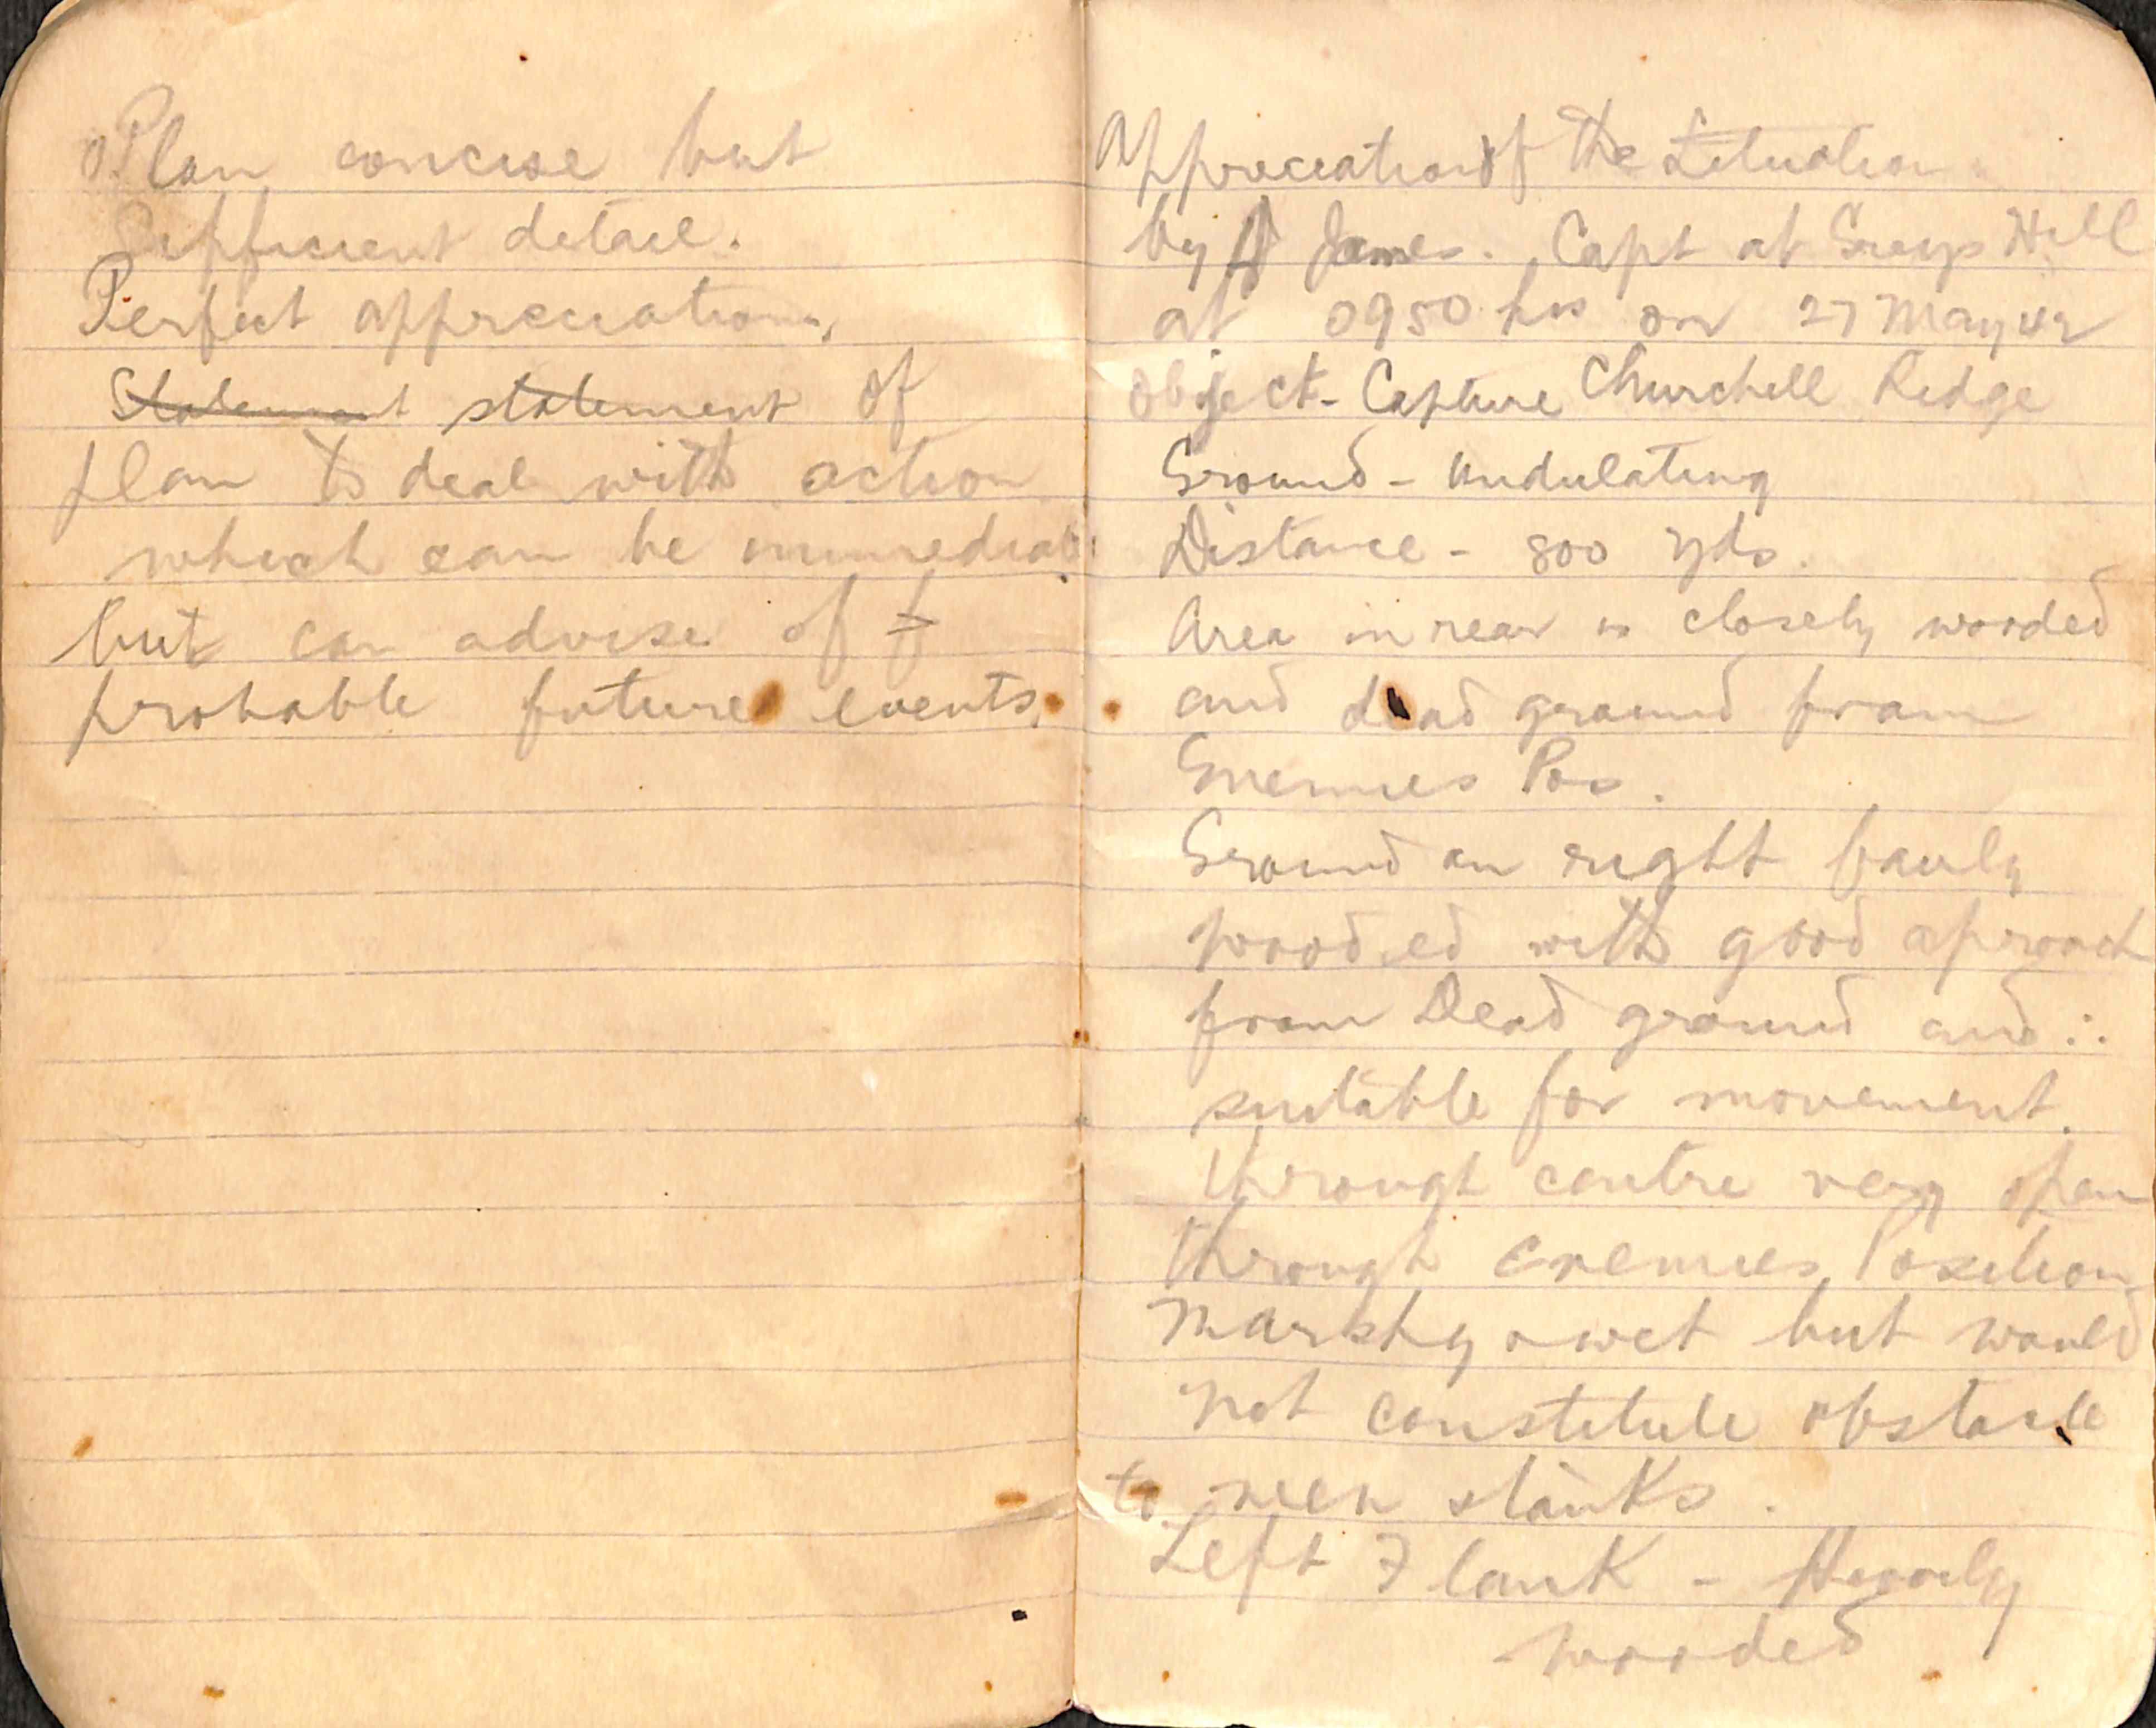 Plan concise but
Sufficient detail.
Perfect appreciation,
Statement statement of
plan to deal with action
which can be immediate
but can advise of
probable future events.
Appreciation of the Situation
by James. Capt at Greys Hill
at 0950 hrs on 27 May 42
Object - Capture Churchill Ridge
Ground - Undulating
Distance - 800 yds.
Area in rear is closely wooded
and dead ground from
Enemies Pos.
Ground on right fairly
wooded with good aproach
from Dead ground and ∴
suitable for movement.
Through centre very open
through enemies Position
Marshy & wet but would
not constitute obstacle
to men & tanks.
Left Flank - Heavily
wooded